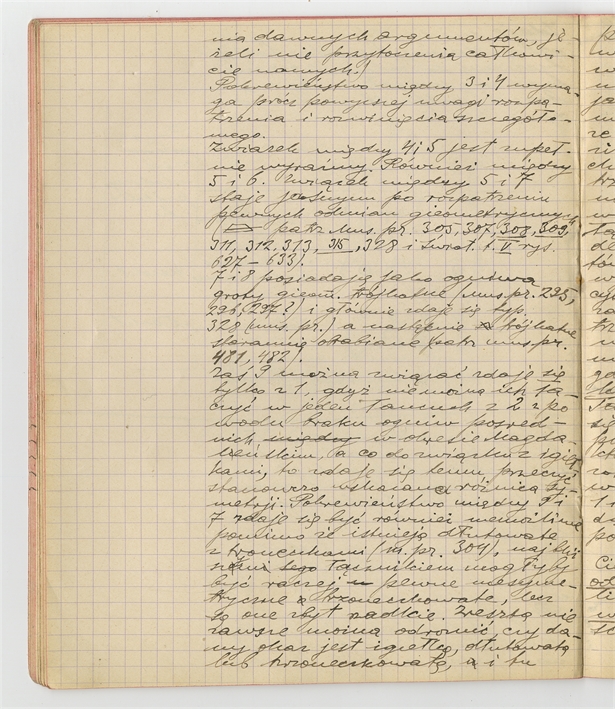 nia dawnych argumentów, je-
żeli nie przytoczenia całkowi-
cie nowych.)
Pokrewieństwo między 3 i 4 wyma-
ga prócz powyższej uwagi rozpa-
trzenia i rozwinięcia szczegóło-
wego.
Związek między 4 i 5 jest zupeł-
nie wyraźny. Również między
5 i 6. Związek między 5 i 7
staje jasnym po rozpatrzeniu
pewnych odmian geometrycznych
(patrz Mus. pr. 305, 307, 308, 309,
311, 312, 313, 315, 328 i Świat. t. V rys.
627 – 633).
7 i 8 posiadają jako ogniwa
groty geom. trójkątne (mus. pr. 295,
296, (297?) i głównie zdaje się typ.
328 (mus. pr.) a następnie trójkątne
starannie obrabiane (patrz mus. pr.
481, 482).
Zaś 9 można związać zdaje się
tylko z 1, gdyż nie można ich łą-
czyć w jeden łańcuch z 2 z po
wodu braku ogniw pośred-
nich między w okresie Magda-
leńskim, a co do związku z igieł-
kami, to zdaje się temu przeczyć
stanowczo wskazana różnica sy-
metrji. Pokrewieństwo między 9 i
7 zdaje się być również niemożliwe
pomimo że istnieją dłutowate
z trzoneczkami (m. pr. 304), najbliż-
łącznikiem mogłyby
być raczej pewne niesyme-
tryczne trzoneczkowate, lecz
są one zbyt rzadkie. Zresztą nie
zawsze można odróżnić, czy da-
ny okaz jest igiełką, dłutowatą
lub trzoneczkowatą, i tu